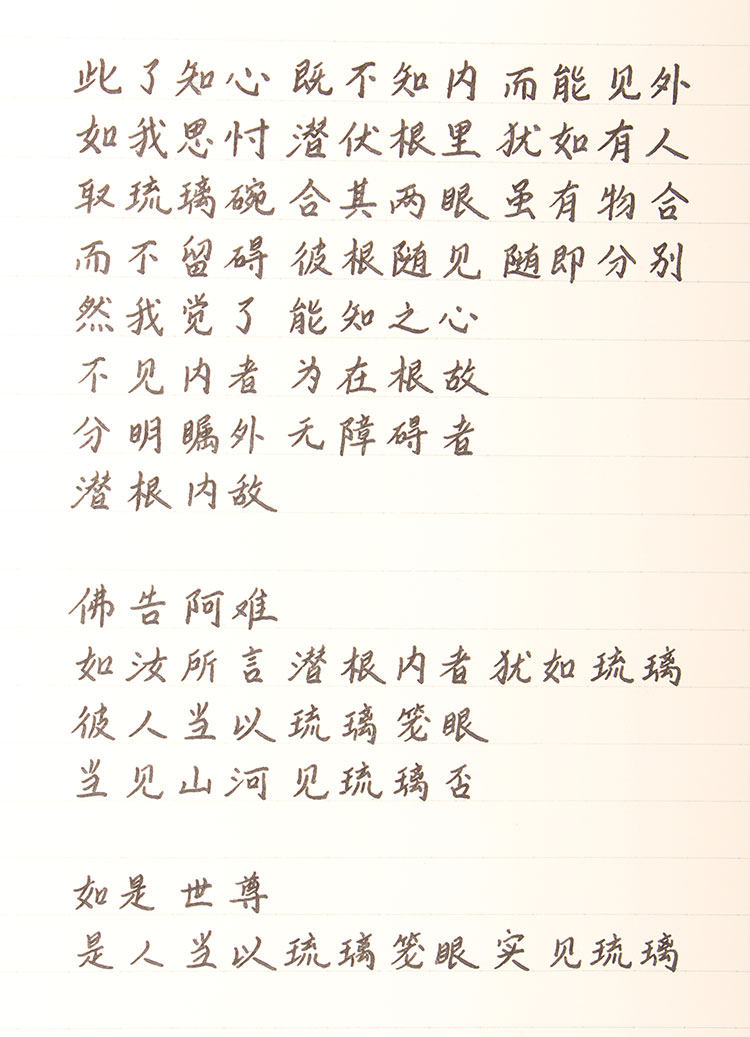 此了知心 既不知内 而能见外
如我思忖 潜伏根里 犹如有人
取琉璃碗 合其两眼 虽有物合
而不留碍 彼根随见 随即分别
然我觉了 能知之心
不见内者 为在根故
分明瞩外 无障碍者
潜根内故
佛告阿难
如汝所言 潜根内者 犹如琉璃
彼人当以琉璃笼眼
当见山河 见琉璃否
如是 世尊
是人当以琉璃笼眼 实见琉璃